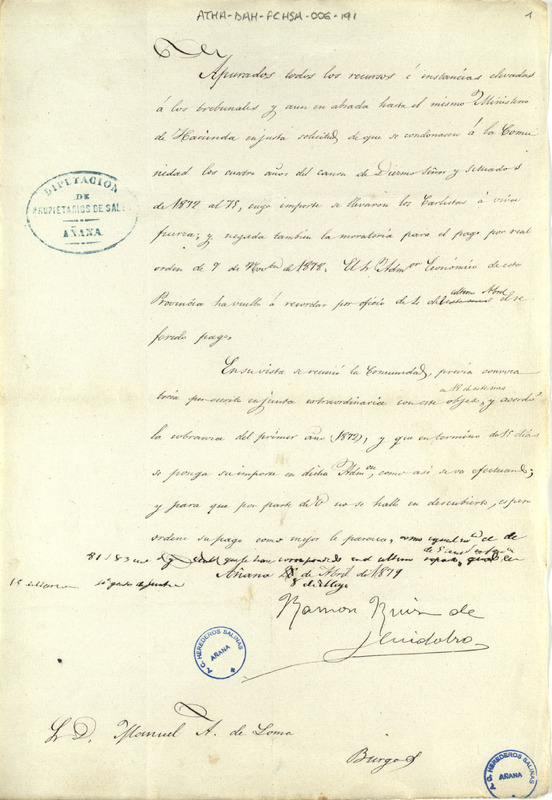 ATHA-DAH-FCHSA-006-191
1
Apurados todos los recursos é instancias elevadas
á los tribunales y aun en alzada hasta el mismo Ministerio
de Hacienda en justa solicitud de que se condonasen á la Comu
nidad los cuatro años del canon de Diezmo Señor y Situados
de 1872 al 75, cuyo importe se llevaron los Carlistas á viva
fuerza; y negada tambien la moratoria para el pago por real
orden de 7 de de 1878. El Sr. Admor Económico de esta
Provincia ha vuelto á recordar por oficio de 2 de último Abril el re
ferido pago.
DIPUTACION
DE
PROPIETARIOS DE SAL
AÑANA
En su vista se reunió la Comunidad, prévia convoca
a 18 de este mes
toria por escrito en junta extraordinaria con este objeto, y acordó
la cobranza del primer año (1872), y que en termino de 15 dias
se ponga su importe en dicha Admon, como asi se va efectuando;
y para que por parte de V no se halle en descubierto, espero
ordene su pago como mejor le parezca, como igual el de
81 183 que le han correspondido en el ultimo reparto
Añana de Abril de 1879
8 de Mayo
Ramon Ruiz de
Huidobro
A. G. HEREDEROS SALINAS
AÑANA
Sr. D. Manuel A. de Loma
Burgos
A. G. HEREDEROS SALINAS
AÑANA